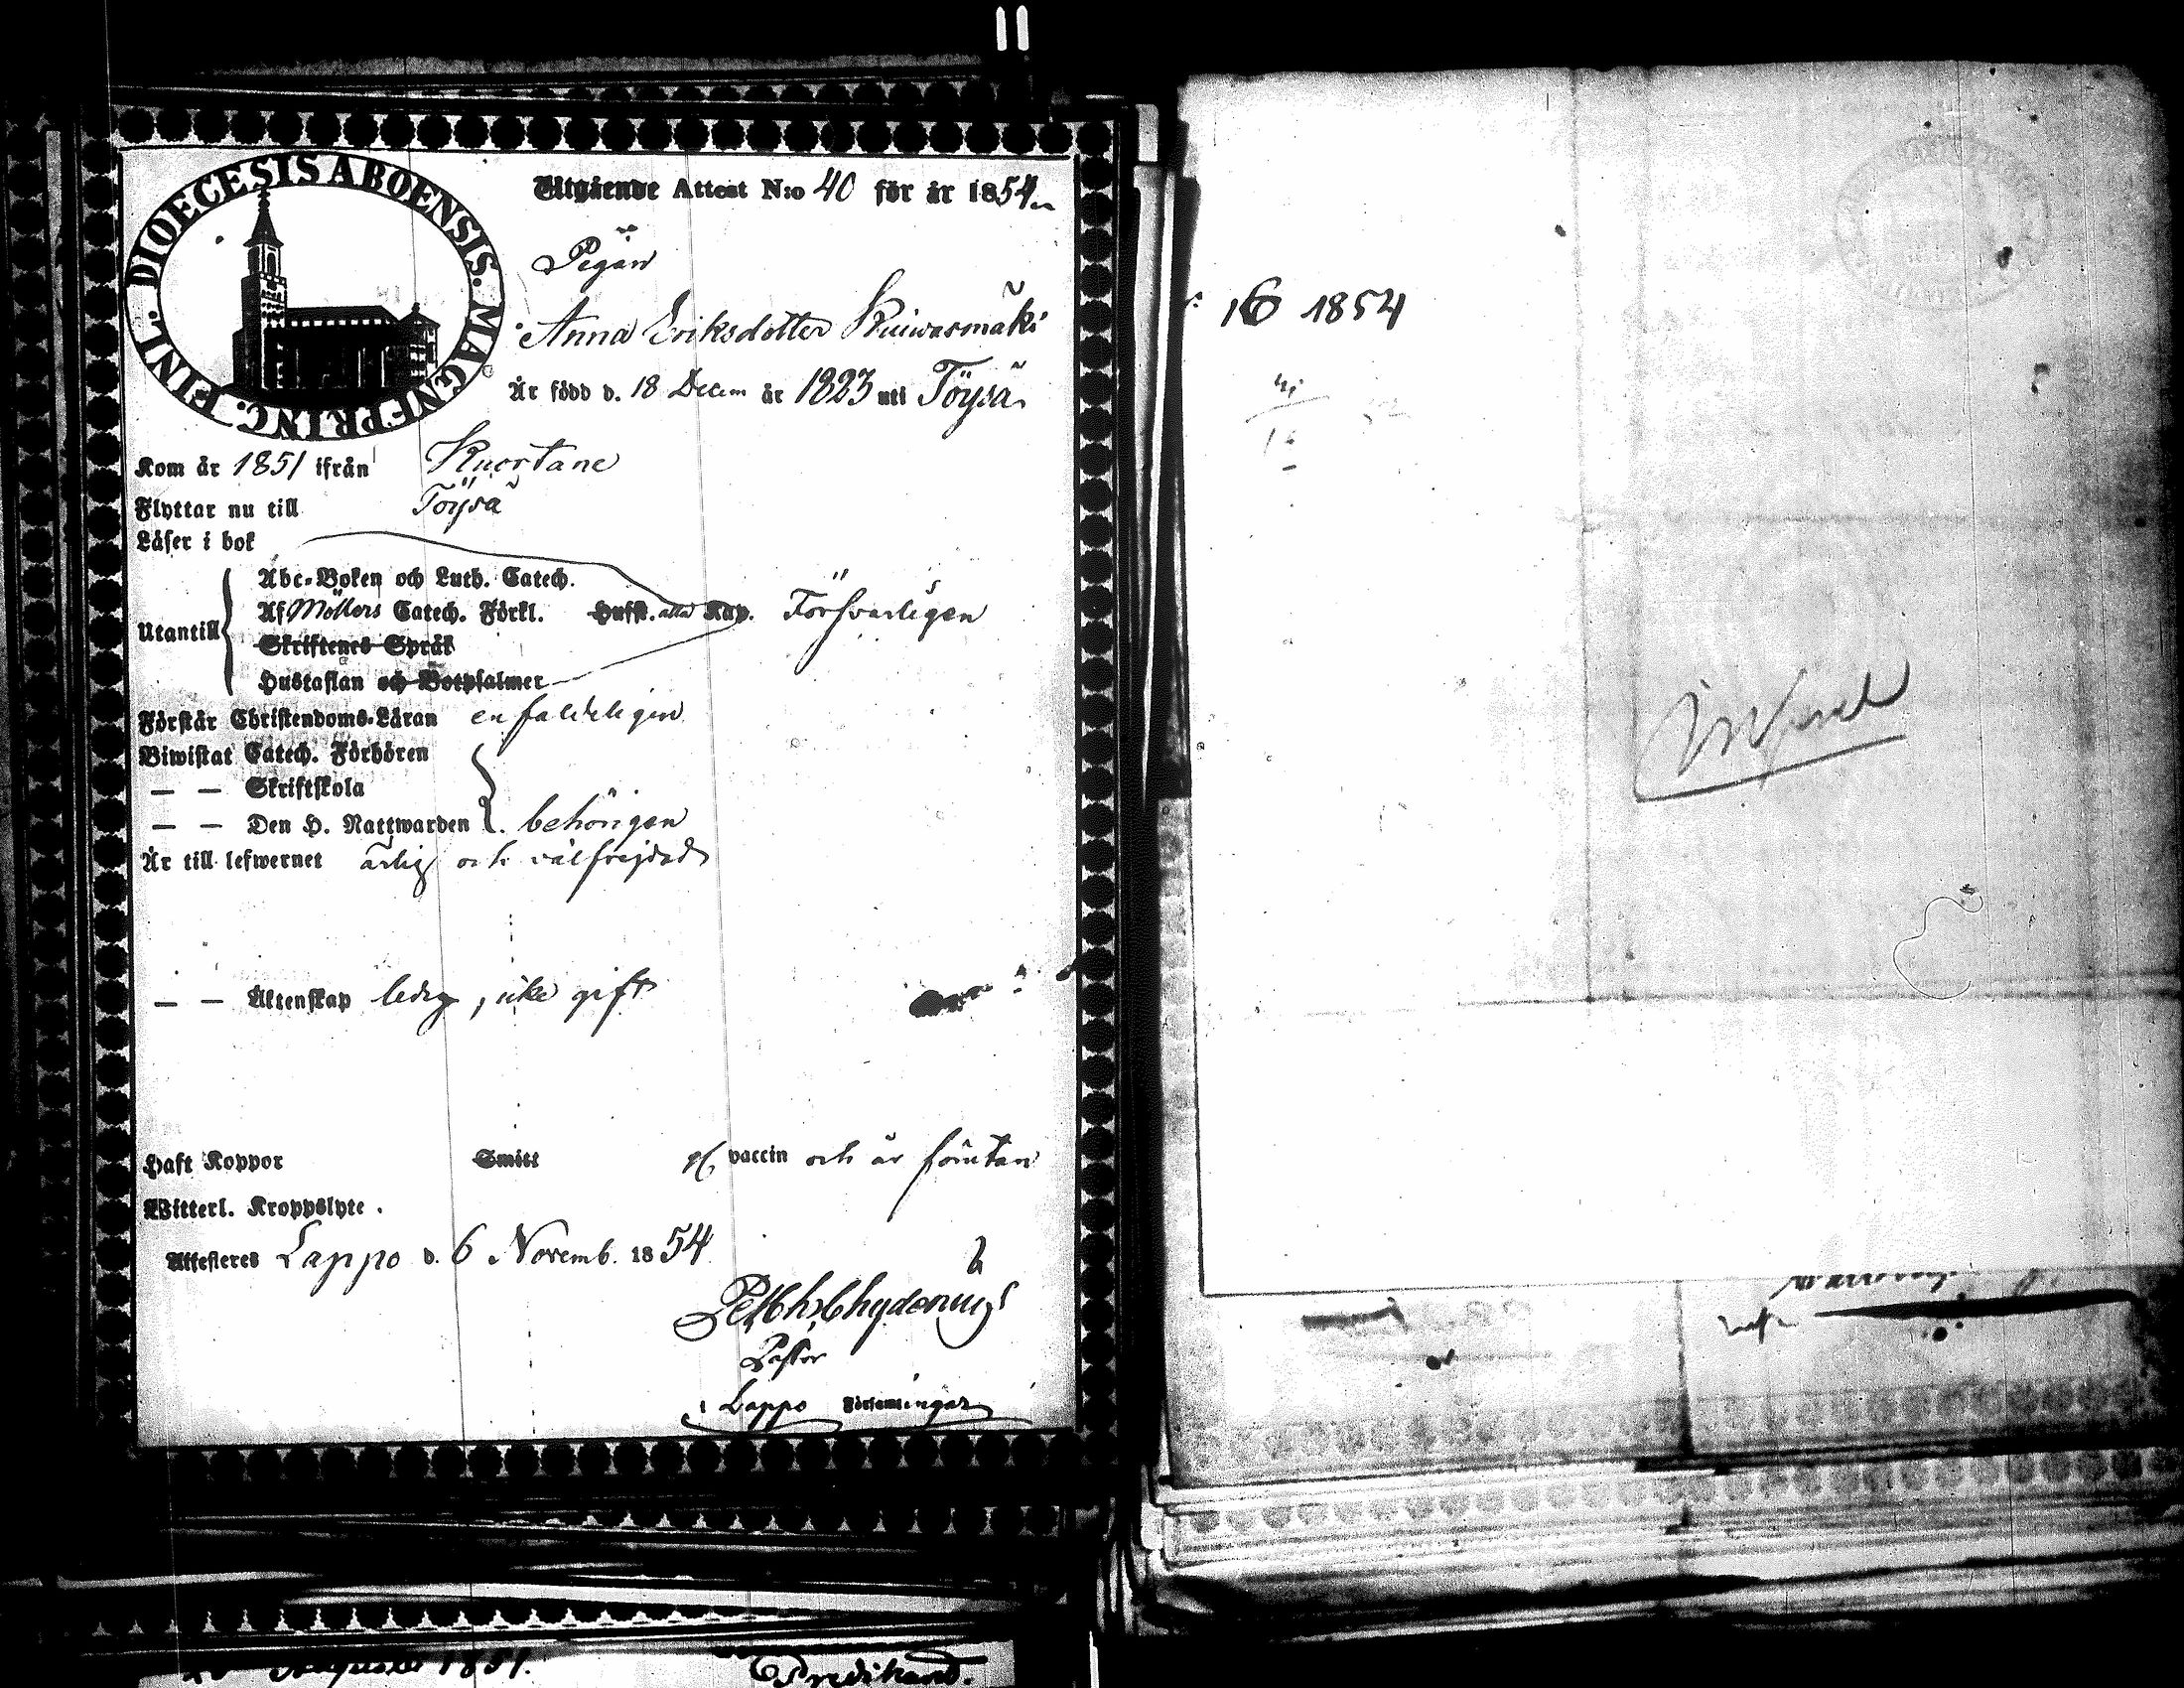 DIOECESIS ABOENSIS. MAGNI PRINC. FINL.
Utgående Attest N:o 40 för år 1854
Pigan
Anna Eriksdotter Kuiwasmäki
Är född d. 18 Decem år 1823 uti Töysä
Kom år 1851 ifrån Kuortane
Flyttar nu till Töysä
Läser i bok
Utantill
Abc-Boken och Luth. Catech.
Af Möllers Catech. Förkl. Hufst. alla Kap. Försvarligen
Skriftenes Språk
Hustaflan och Botpsalmer
Förstår Christendoms-Läran enfaldeligen
Biwistat Catech. Förhören
— — Skriftskola
— — Den H. Nattwarden behörigen
Är till lefwernet ärlig och välfrejdad
— — Äktenskap ledig, icke gift
Haft Koppor Smitt vaccin och är förutan
Witterl. Kroppslyte.
Attesteras Lappo d. 6 Novemb. 1854
Chydenius
Pastor
i Lappo Församlingar
16 1854
Augusti 1851.
Predikant.